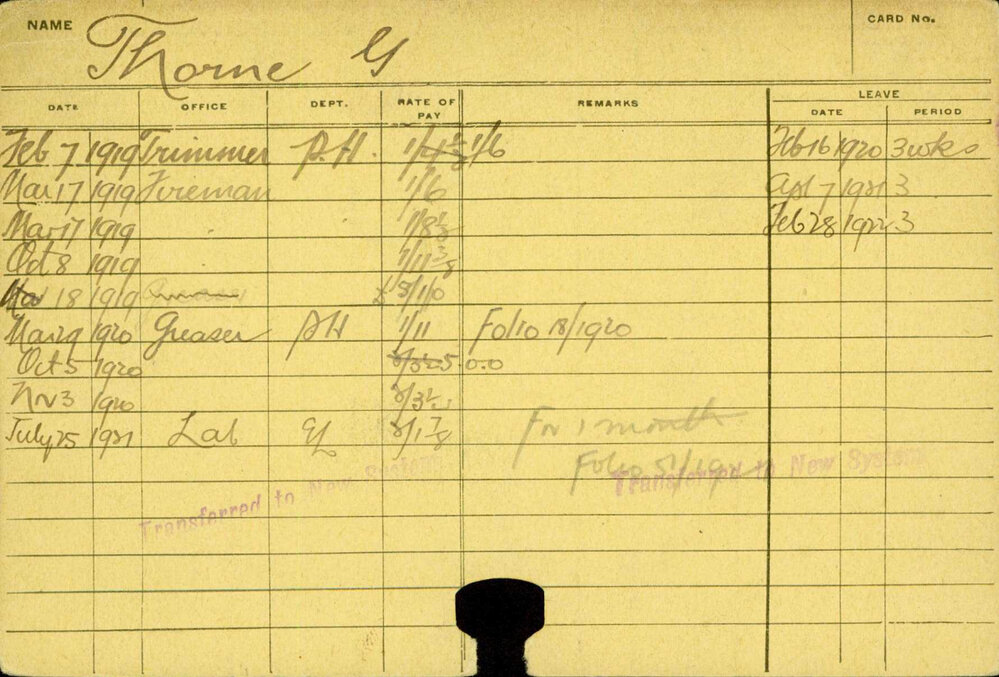 NAME Thorne G CARD No.
DATE OFFICE DEPT. RATE OF PAY REMARKS LEAVE
DATE PERIOD
Feb 7 1919 Trimmer P.H. 1/4½ 1/6 Feb 16 1920 3 wks
Mar 17 1919 Fireman 1/6 Apl 7 1921 3
Mar 17 1919 1/8½ Feb 28 1922 3
Oct 8 1919 1/11
18 1919
Mar 29 1920 Greaser PH 1/11 Folio 18/1920
Oct 5 1920
Nov 3 1920 2/3½
July 25 1921 Lab EL 2/1⅞ For 1 month
Folio
Transferred to New System
Transferred to New System